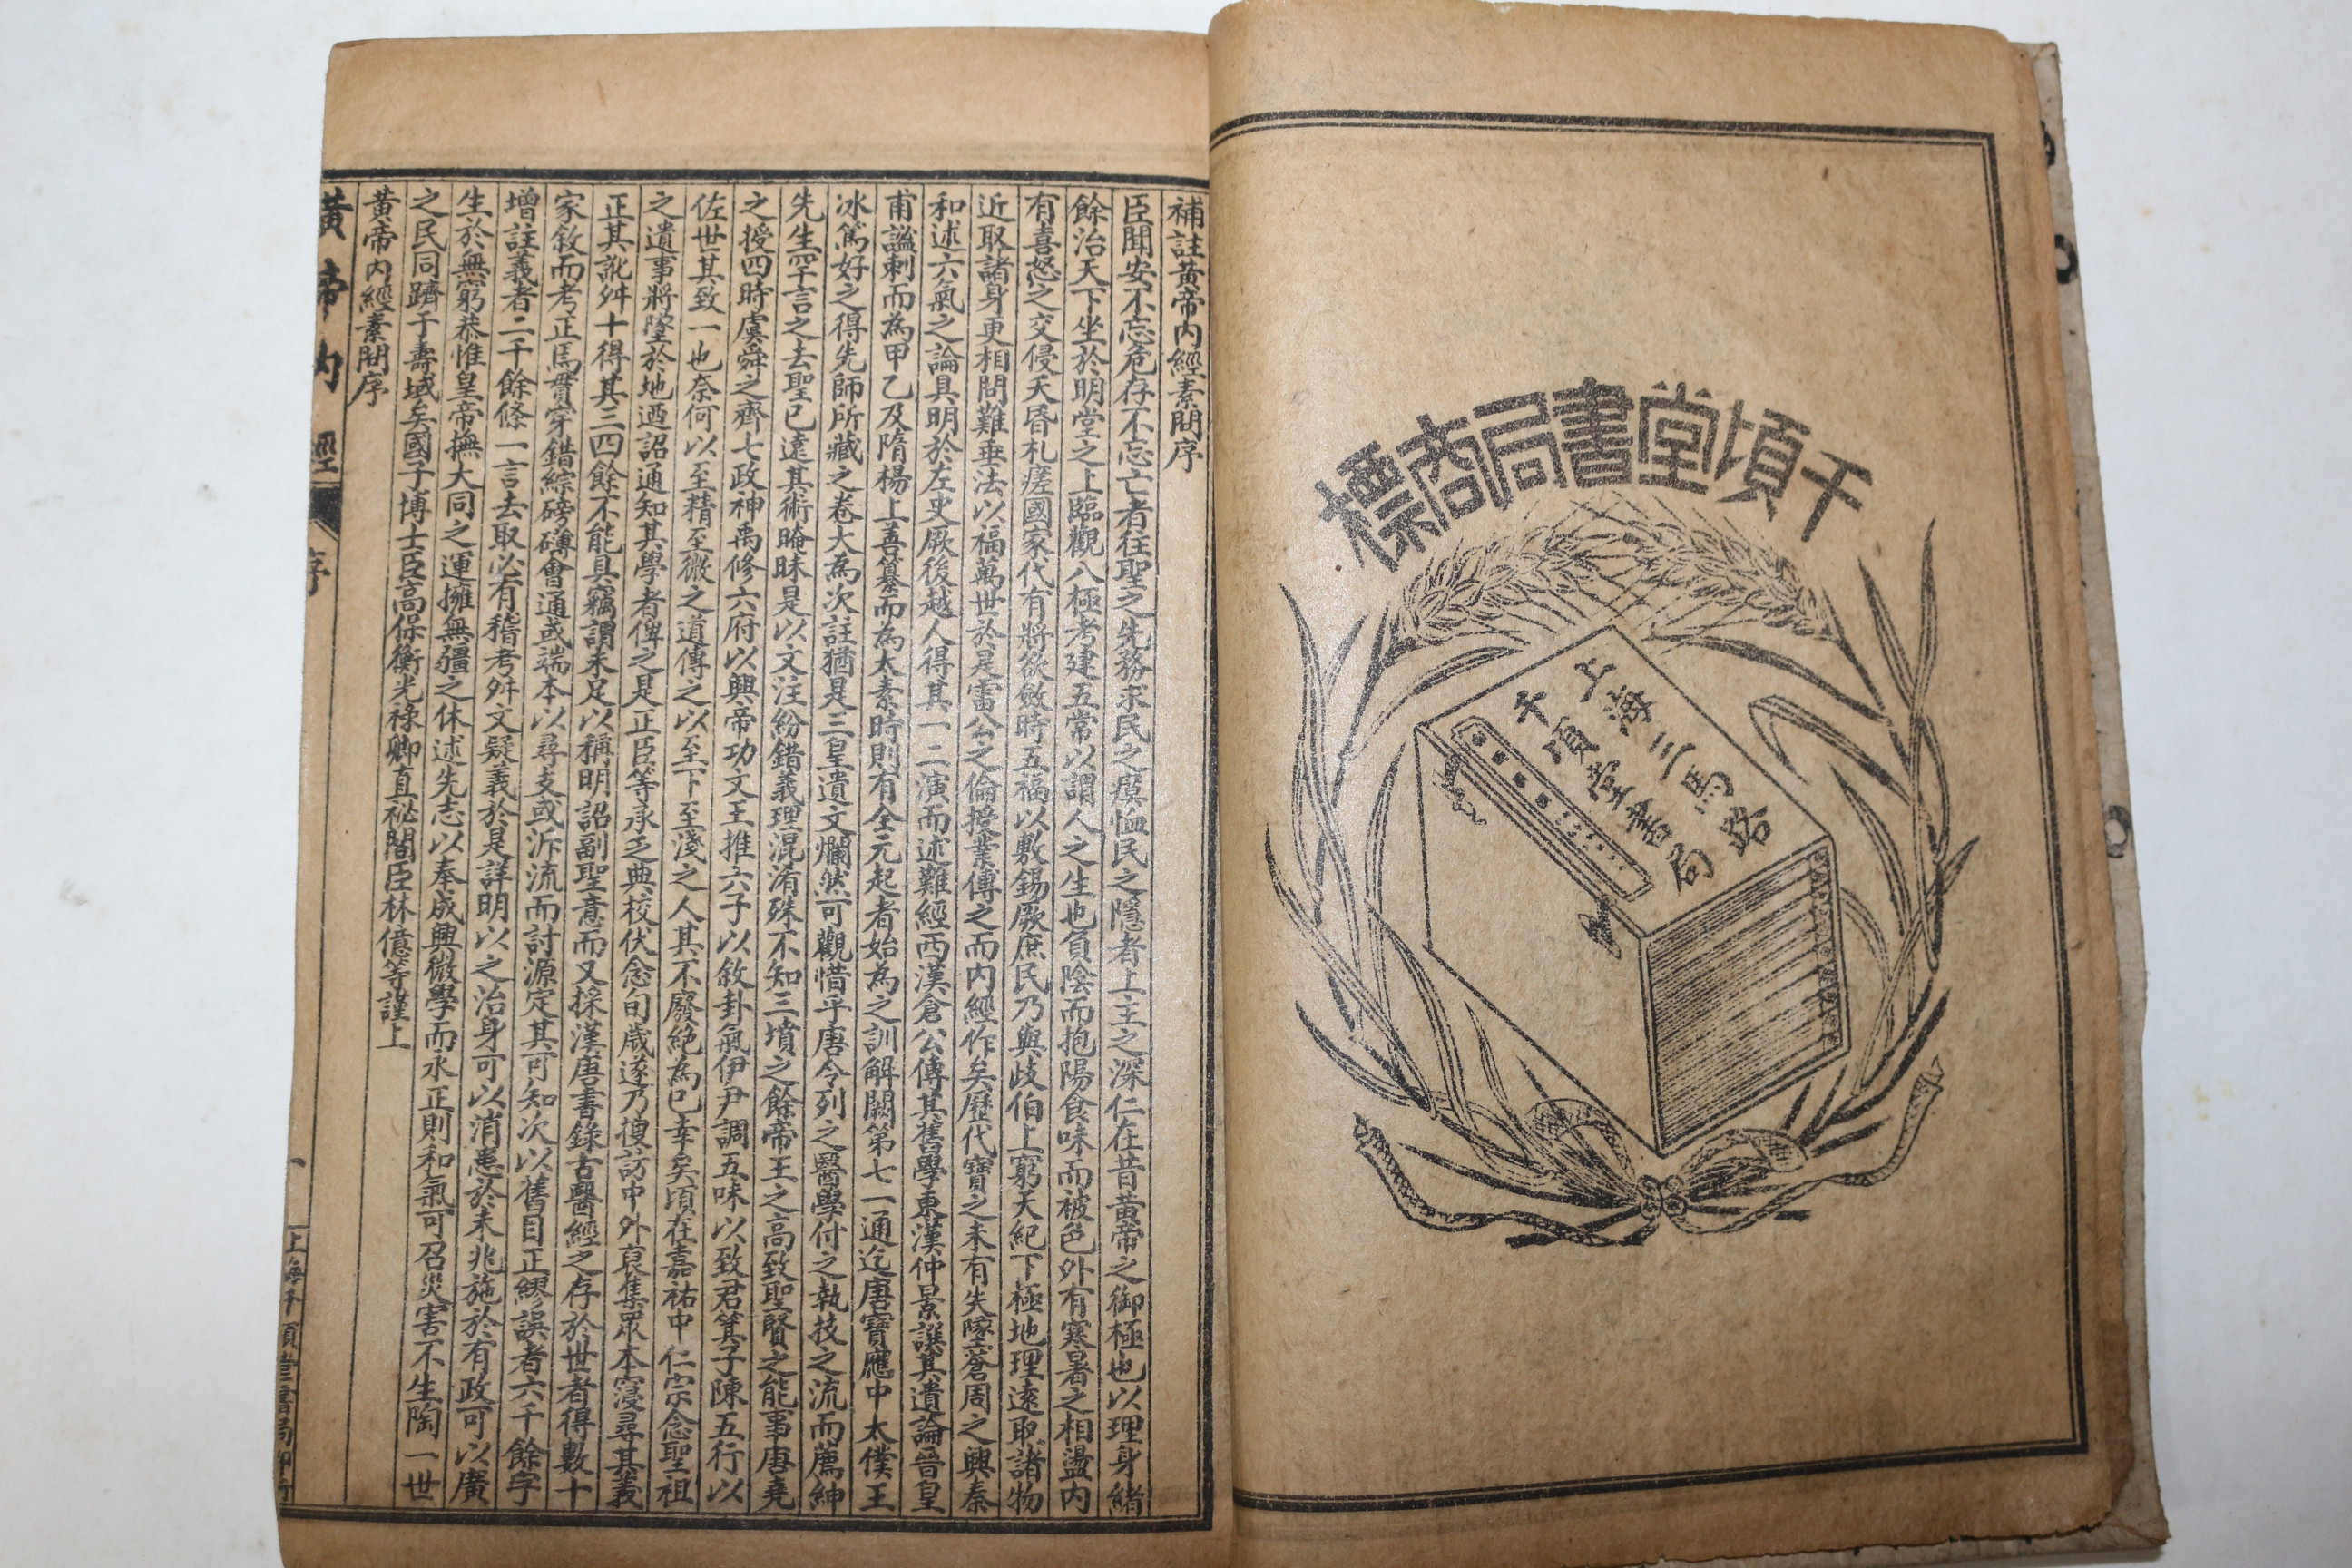 千頃堂書局商標
上海三馬路
千頃堂書局
補註黃帝內經素問序
臣聞安不忘危存不忘亡者往聖之先務求民之瘼恤民之隱者上主之深仁在昔黃帝之御極也以理身緒
餘治天下坐於明堂之上臨觀八極考建五常以謂人之生也負陰而抱陽食味而被色外有寒暑之相盪內
有喜怒之交侵夭昏札瘥國家代有將欲斂時五福以敷錫厥庶民乃與歧伯上窮天紀下極地理遠取諸物
近取諸身更相問難垂法以福萬世於是雷公之倫授業傳之而內經作矣歷代寶之未有失墜蒼周之興秦
和述六氣之論具明於左史厥後越人得其一二演而述難經西漢倉公傳其舊學東漢仲景譔其遺論晉皇
甫謐刺而為甲乙及隋楊上善纂而為太素時則有全元起者始為之訓解闕第七一通迄唐寶應中太僕王
冰篤好之得先師所藏之卷大為次註猶是三皇遺文爛然可觀惜乎唐令列之醫學付之執技之流而薦紳
先生罕言之去聖已遠其術晻昧是以文注紛錯義理混淆殊不知三墳之餘帝王之高致聖賢之能事唐堯
之授四時虞舜之齊七政神禹修六府以興帝功文王推六子以敘卦氣伊尹調五味以致君箕子陳五行以
佐世其致一也奈何以至精至微之道傳之以至下至淺之人其不廢絕為已幸矣頃在嘉祐中 仁宗念聖祖
之遺事將墜於地迺詔通知其學者俾之是正臣等承乏典校伏念旬歲遂乃搜訪中外裒集眾本寖尋其義
正其訛舛十得其三四餘不能具竊謂未足以稱明詔副聖意而又採漢唐書錄古醫經之存於世者得數十
家敘而考正焉貫穿錯綜磅礴會通或端本以尋支或泝流而討源定其可知次以舊目正繆誤者六千餘字
增註義者二千餘條一言去取必有稽考舛文疑義於是詳明以之治身可以消患於未兆施於有政可以廣
生於無窮恭惟皇帝撫大同之運擁無疆之休述先志以奉成興微學而永正則和氣可召災害不生陶一世
之民同躋于壽域矣國子博士臣高保衡光祿卿直祕閣臣林億等謹上
黃帝內經素問序
黃帝內經 序 一 上海千頃堂書局印行